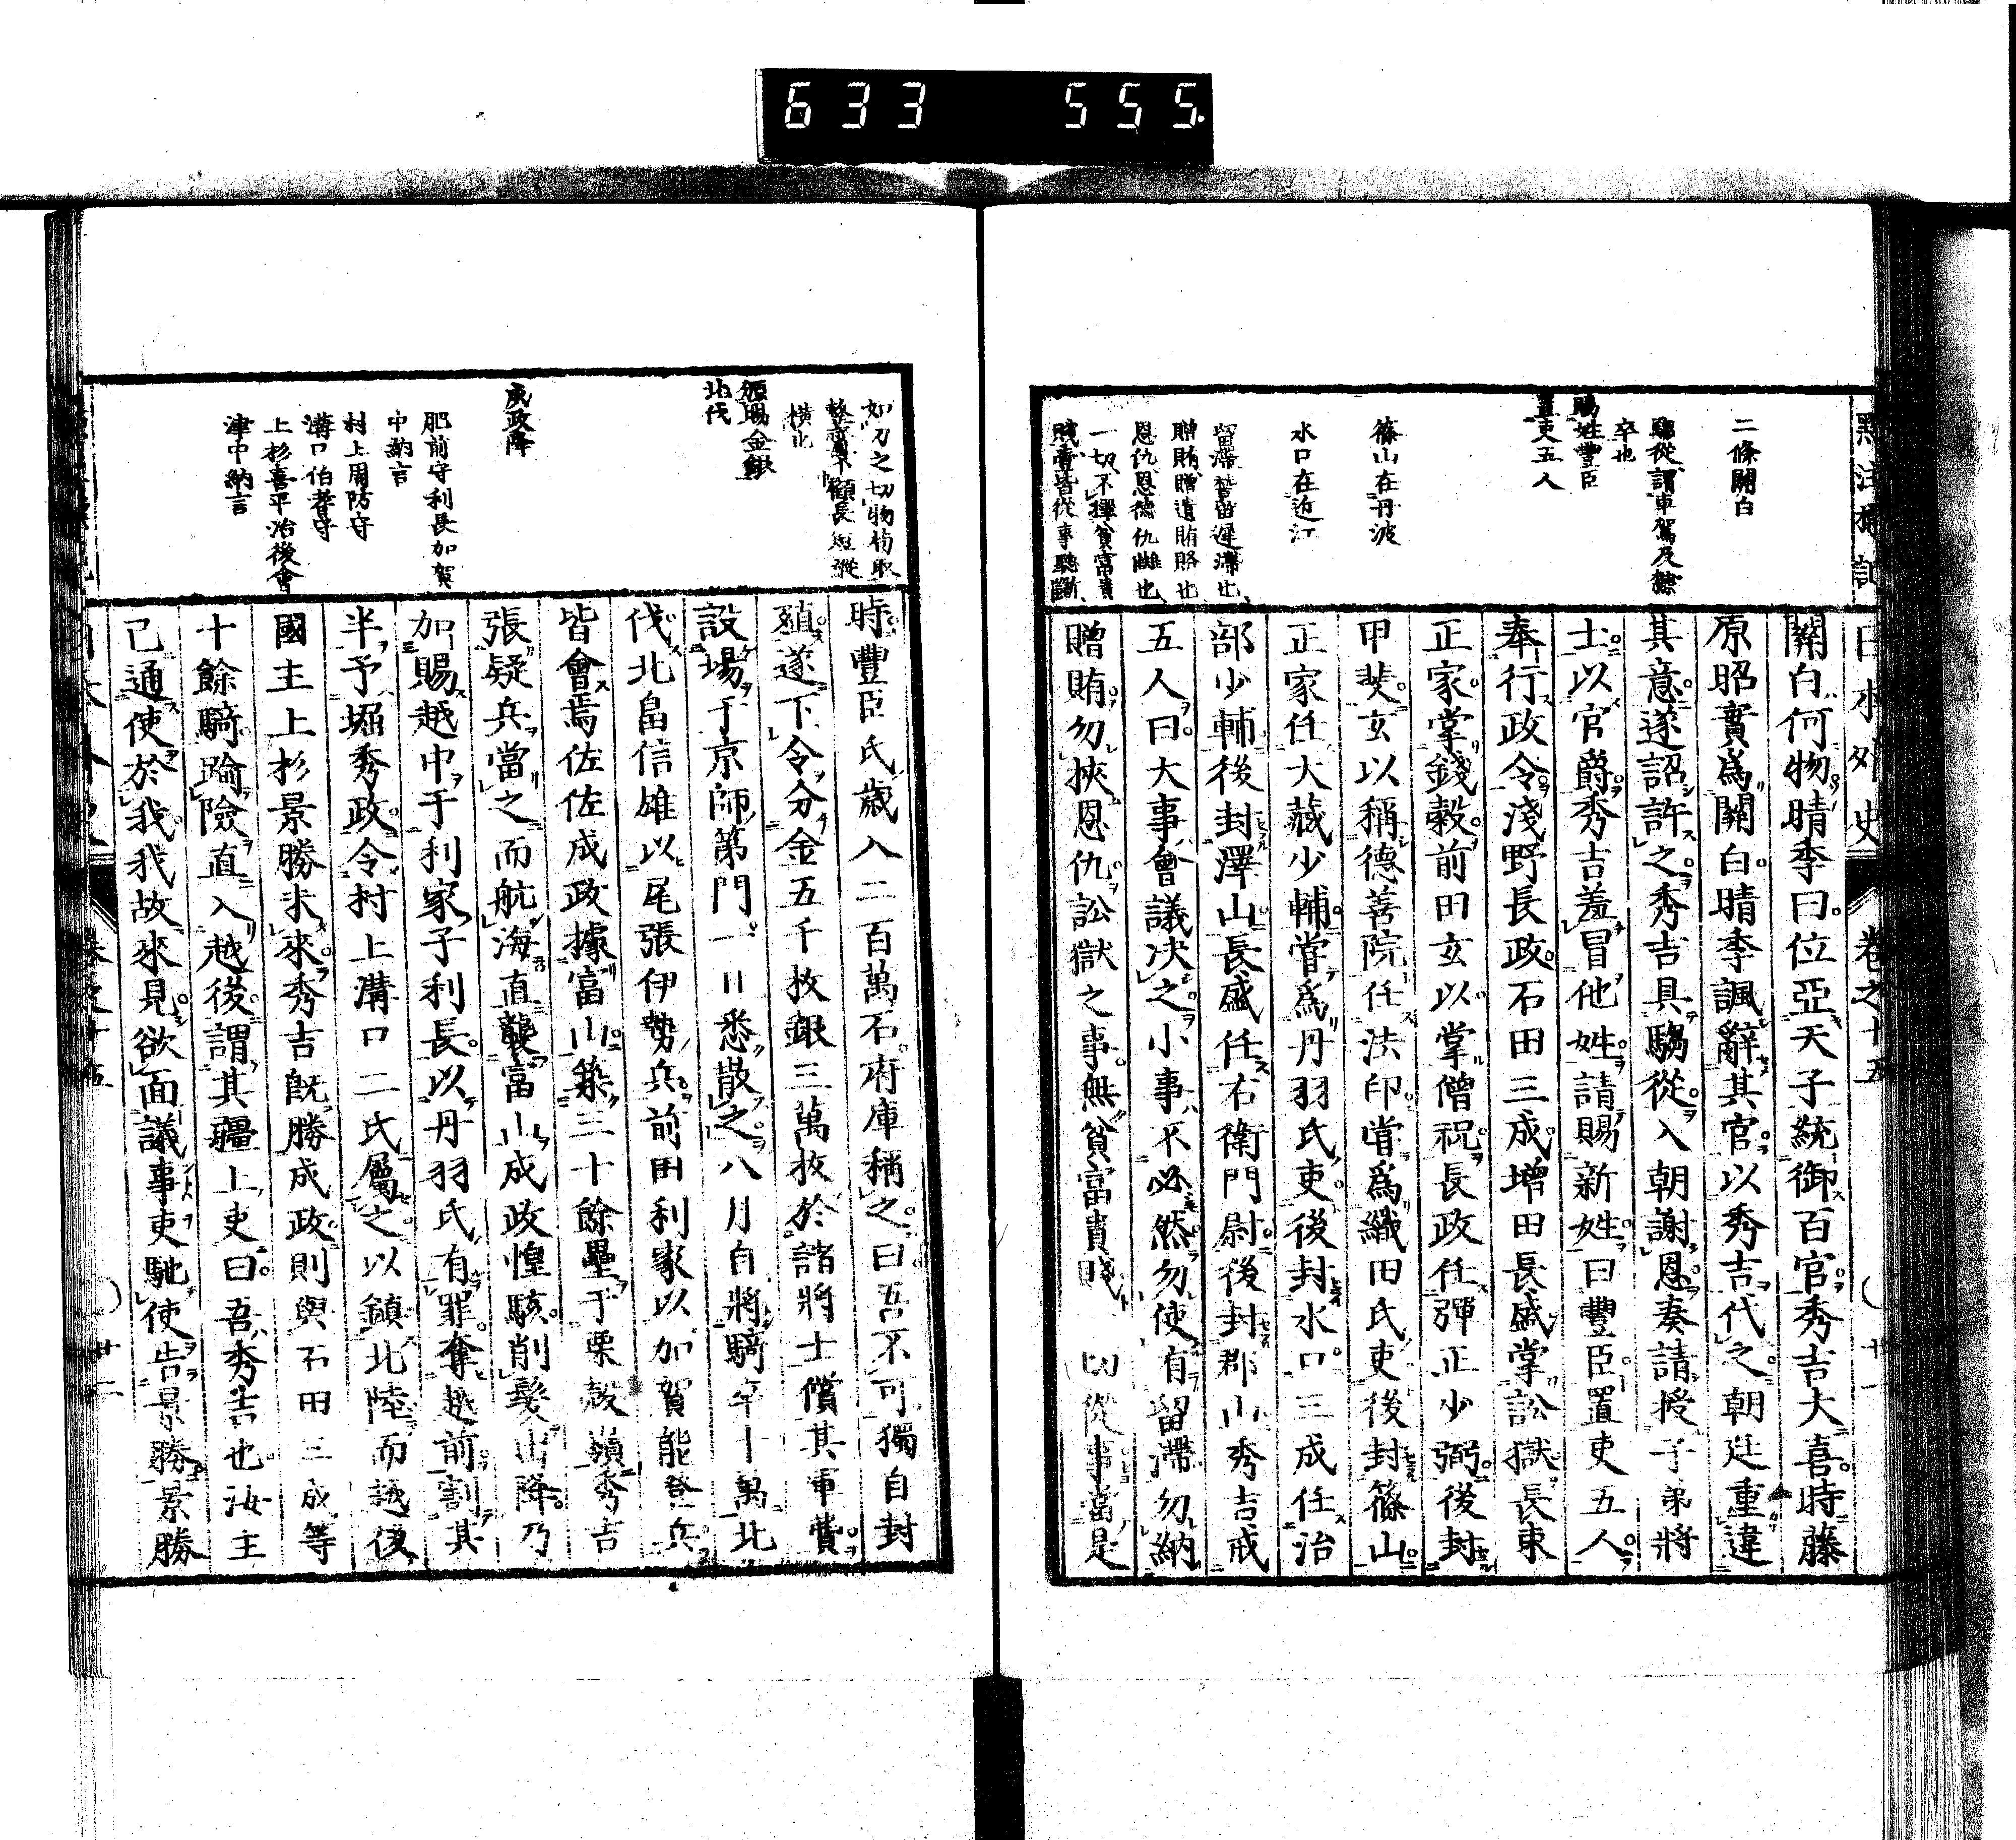 633 555
日本外史 卷之十五
二條關白
騶從謂車駕及隸
卒也
賜姓豐臣
置吏五人
篠山在丹波
水口在近江
留滯替留遲滯也
贈賄贈遺賄賂也
恩仇恩德仇讎也
一切不擇貧富貴
賤壹皆從事聽斷
關白何物晴季曰位亞天子統御百官秀吉大喜時藤
原昭實爲關白晴季諷辭其官以秀吉代之朝廷重違
其意遂詔許之秀吉具騶從入朝謝恩奏請授子弟將
士以官爵秀吉羞冒他姓請賜新姓曰豐臣置吏五人
奉行政令淺野長政石田三成增田長盛掌訟獄長束
正家掌錢穀前田玄以掌僧祝長政任彈正少弼後封
甲斐玄以稱德善院任法印嘗爲織田氏吏後封篠山
正家任大藏少輔嘗爲丹羽氏吏後封水口三成任治
部少輔後封澤山長盛任右衛門尉後封郡山秀吉戒
五人曰大事會議決之小事不必然勿使有留滯勿納
贈賄勿挾恩仇訟獄之事無貧富貴賤 切從事當是
如刀之切物苟取
整齊不顧長短縱
橫也
頒賜金銀
北伐
成政降
肥前守利長加賀
中納言
村上周防守
溝口伯耆守
上杉喜平治後會
津中納言
時豐臣氏歲入二百萬石府庫稱之曰吾不可獨自封
殖遂下令分金五千枚銀三萬枚於諸將士償其軍費
設場于京師第門一日悉散之八月自將騎卒十萬北
伐北畠信雄以尾張伊勢兵前田利家以加賀能登兵
皆會焉佐佐成政據富山築三十餘壘于栗殼嶺秀吉
張疑兵當之而航海直襲富山成政惶駭削髮出降乃
加賜越中于利家子利長以丹羽氏有罪奪越前割其
半予堀秀政令村上溝口二氏屬之以鎮北陸而越後
國主上杉景勝未來秀吉既勝成政則與石田三成等
十餘騎踰險直入越後謂其疆上吏曰吾秀吉也汝主
已通使於我我故來見欲面議事吏馳使告景勝景勝